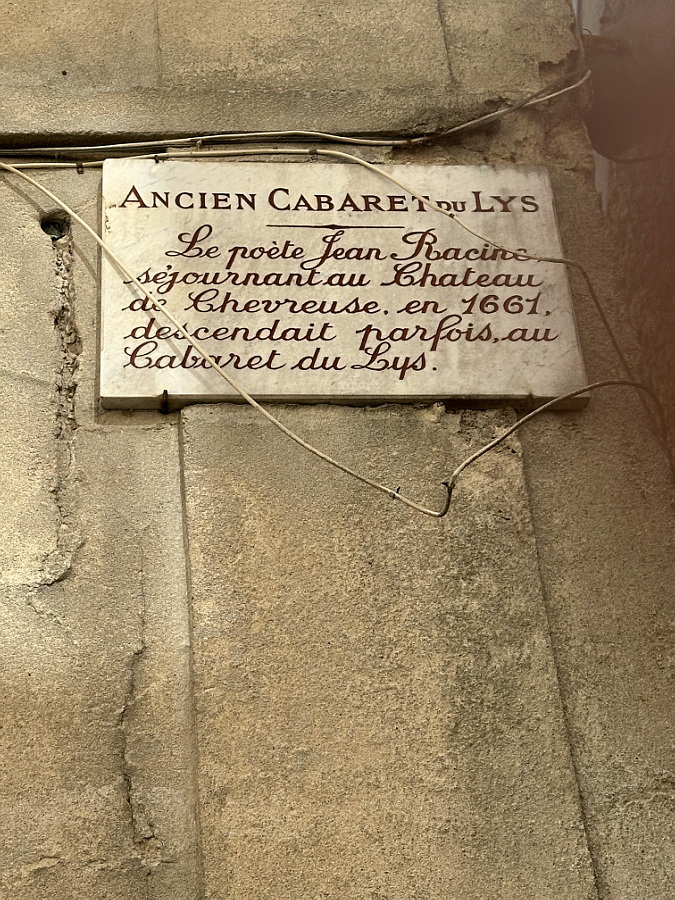 ANCIEN CABARET DU LYS
Le poète Jean Racine
séjournant au Chateau
de Chevreuse, en 1661,
descendait parfois, au
Cabaret du Lys.